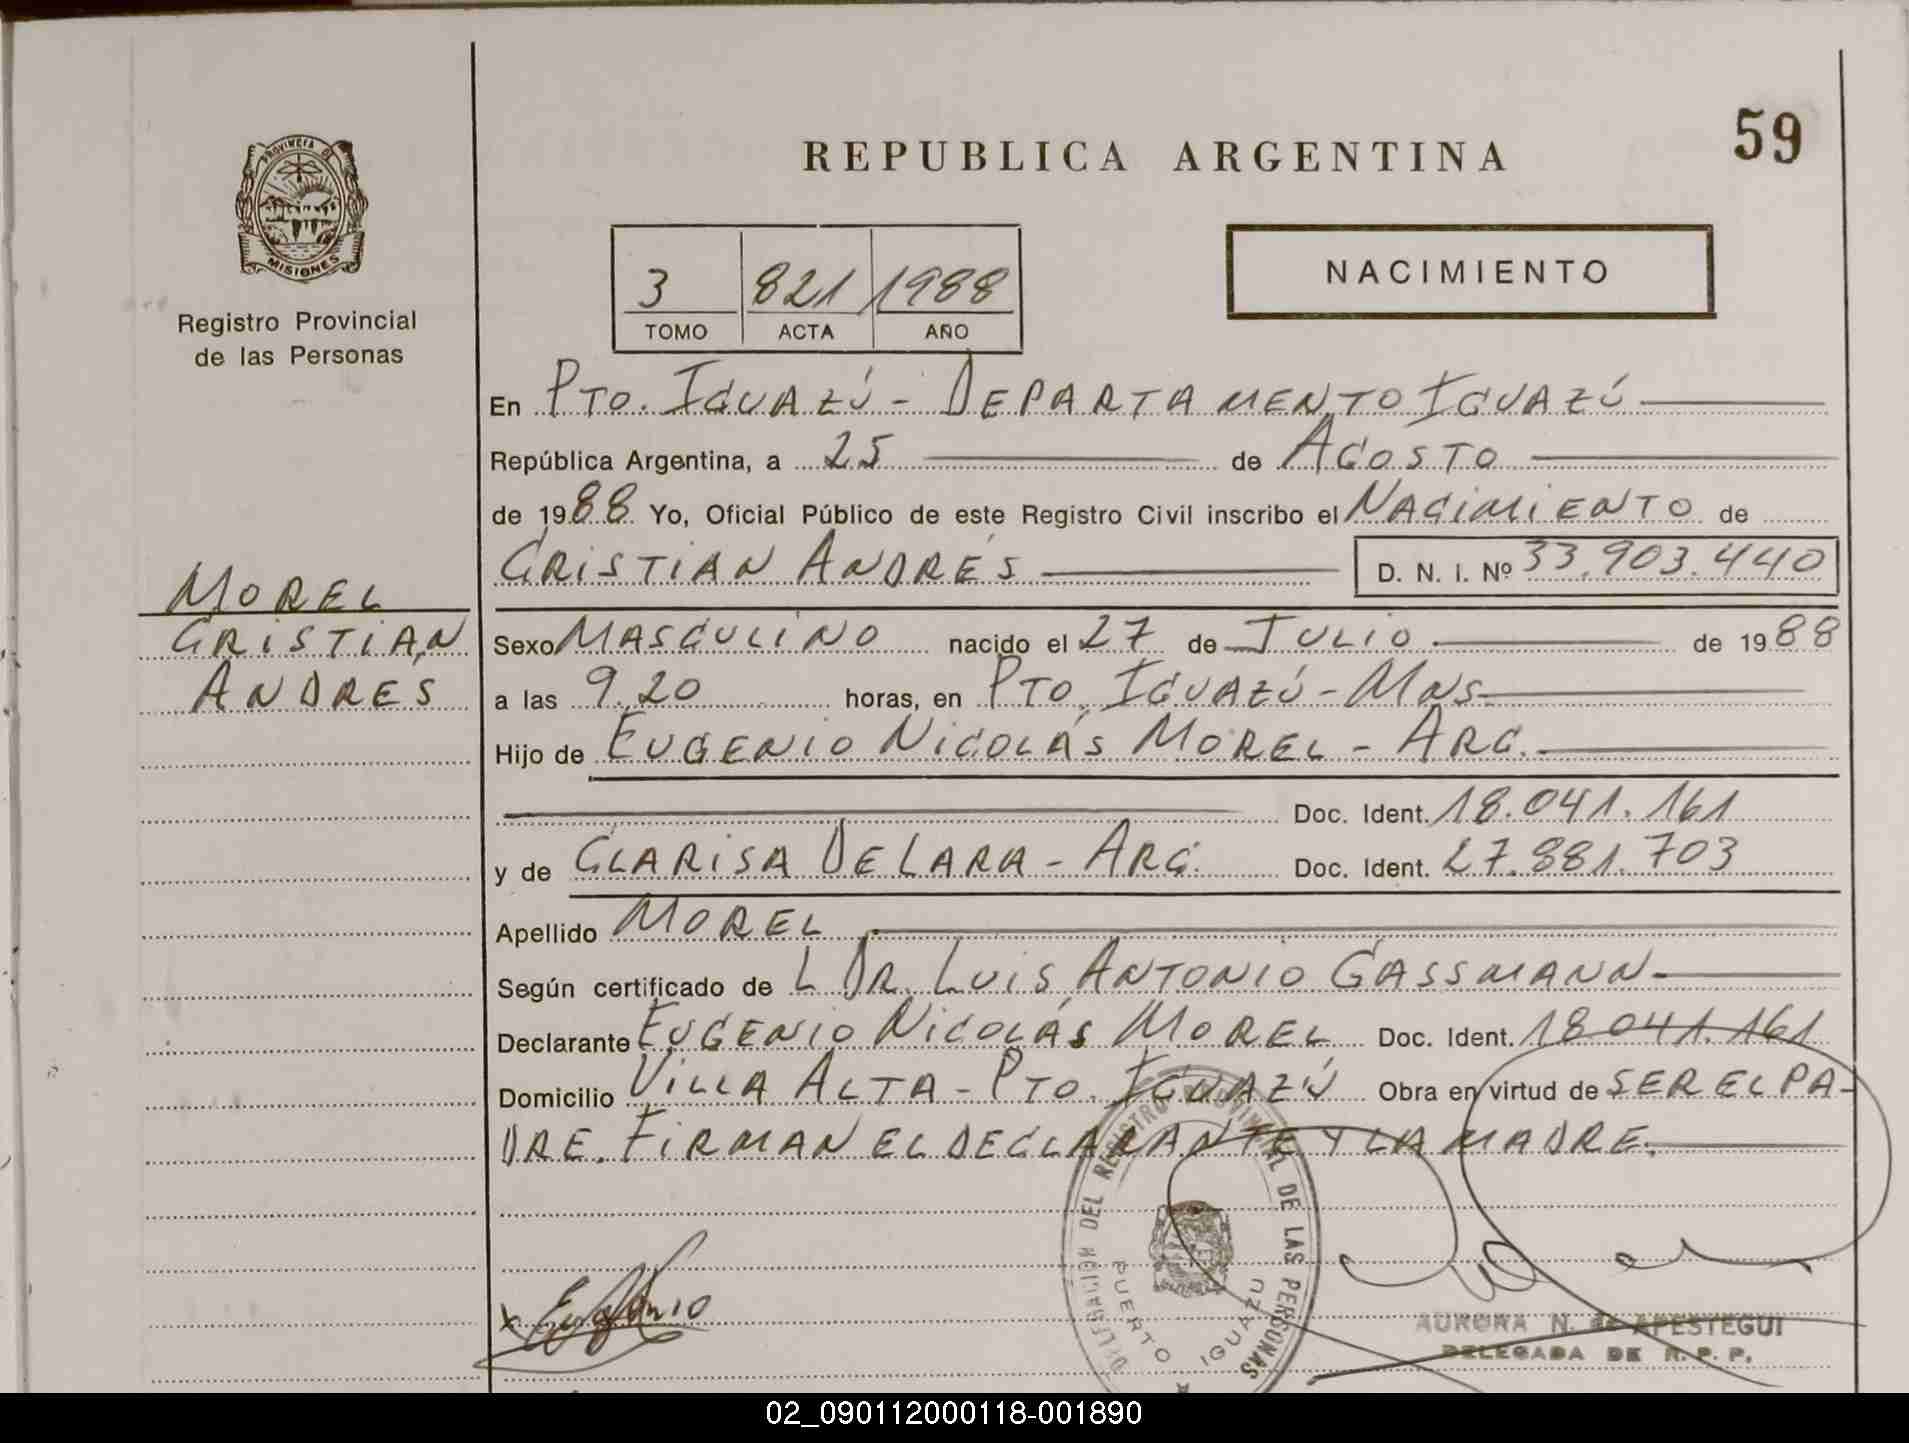 59
REPUBLICA ARGENTINA
PROVINCIA DE
MISIONES
Registro Provincial
de las Personas
3 821 1988
TOMO ACTA AÑO
NACIMIENTO
En PTO. IGUAZÚ - DEPARTAMENTO IGUAZÚ
República Argentina, a 25 de AGOSTO
de 1988 Yo, Oficial Público de este Registro Civil inscribo el NACIMIENTO de
CRISTIAN ANDRÉS D. N. I. Nº 33.903.440
MOREL
CRISTIAN
ANDRES
Sexo MASCULINO nacido el 27 de JULIO de 1988
a las 9.20 horas, en PTO. IGUAZÚ - MNS
Hijo de EUGENIO NICOLÁS MOREL - ARG.
Doc. Ident. 18.041.161
y de CLARISA DE LARA - ARG. Doc. Ident. 27.881.703
Apellido MOREL
Según certificado de L DR. LUIS ANTONIO GASSMANN
Declarante EUGENIO NICOLÁS MOREL Doc. Ident. 18.041.161
Domicilio VILLA ALTA - PTO. IGUAZÚ Obra en virtud de SER EL PA-
DRE. FIRMAN EL DECLARANTE Y LA MADRE.
DELEGACION DEL REGISTRO PROVINCIAL DE LAS PERSONAS
PUERTO IGUAZU
x Eugenio
AURORA N. de APESTEGUI
DELEGADA DE R. P. P.
02_090112000118-001890